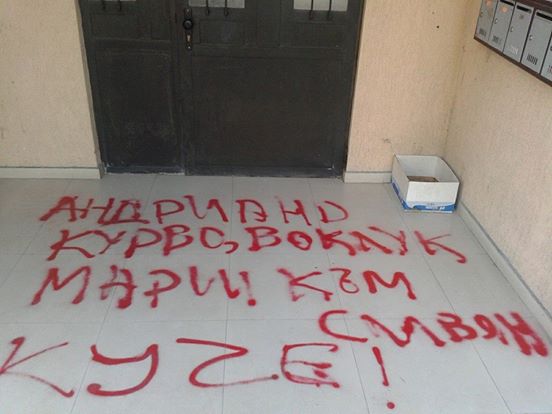 АНДРИАНО
КУРВО, БОКЛУК
МАРИЙ! КЪМ
СИВЯН
КУЧЕ!